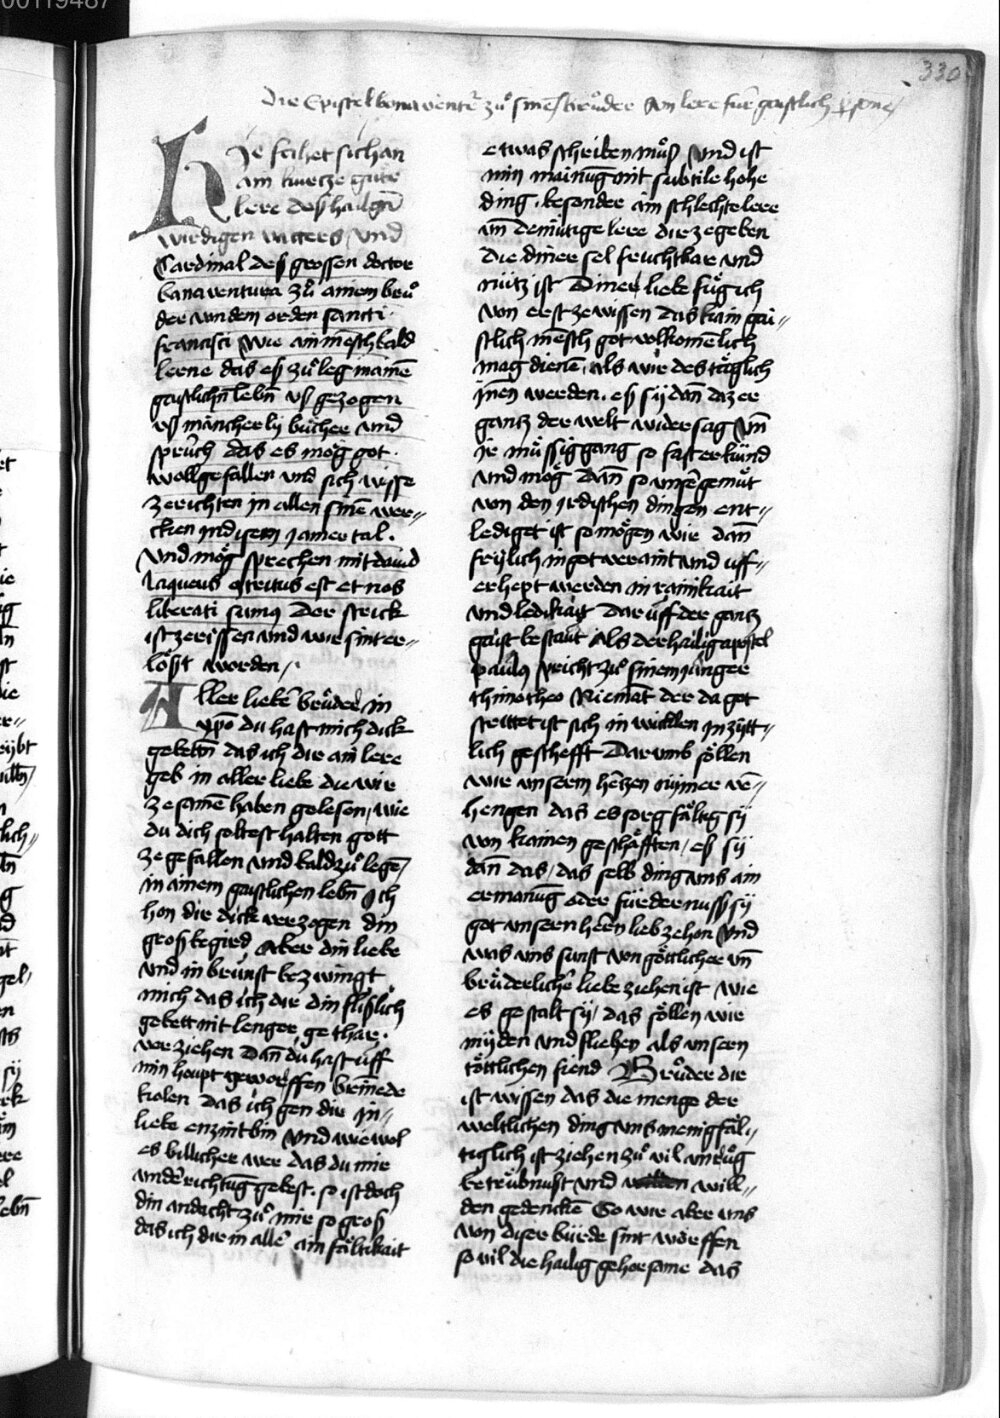 330
Die Epistel bonaventure zuͦ sinē bruͦder von lere fúr gaistlich psone
Hie fachet sich an
ain kurcze gute
lere deß hailgē
wirdigen vatters / und
Cardinal deß grossen doctor
bonaventura zuͦ ainem bruͦ
der von dem orden sancti
francisci / Wie ain mēsch bald
lerne das eß zuͦ leg in ainē
gaistlichn lebn vß gezogen
vß mancherly buͤcher und
spruͤch das es moͤg got
wollgefallen und sich wisse
ze richten in allen sinē wer-
cken in disem jamer tal .
Und moͤg sprechen mit dauid
laqueus 9tritus est et nos
liberati sumꝰ Der strick
ist zerissen und wir sint er-
loͤßt worden /
Aller liebē bruͤder in
xpō du hast mich dick
gebettn das ich dir ain lere
geb in aller liebe die wir
ze samē haben gelesen / wie
du dich soltest halten gott
ze gefallen und bald zuͦ legē
in ainem gaistlichen lebn Ich
hon dir dick verzogen din
groß begird Aber din liebe
und in brunst bezwingt
mich das ich dir din flißlich
gebett nit lenger ge thar .
verziehen Dan̄ du hast uff
min houpt geworffen brin̄ede
kolen das ich gen dir in /
liebe enzint bin Und wie wol
es billicher wer das du mir
underichtūg gebest . so ist doch
din andacht zuͦ mir so groß
das ich dir in allē ain faͤltikait
etwas schriben muͦß Und ist
min mainūg nit subtile hohe
ding . besonder ain schlechte lere
ain demuͤtige lere dir ze geben
die diner sel fruchtbar und
nuͤtz ist Diner liebe fuͤg ich
von erst ze wissen das kain gai-
stlich mēsch got volkomēlich
mag dienē , als wir des taͤglich
jnen werden . eß sij dan̄ daz er
gantz der welt widersag Un̄
ir muͤssiggang so fast er kund
und moͤg Dan̄ so unser gemuͤt
von den irdischen dingen ent-
lediget ist so moͤgen wir dan̄
frijlich in got veraint und uff-
erhept werden in rainikait
und ledikait Dar uff der gantz
gaist bestaut Als der hailig apostel
paulꝰ spricht zuͦ sinem junger
thimotheo Niemāt der da got
strittet ist sich in wicklen in zijtt-
lich geschefft Dar umb soͤllen
wir unserem hertzen nimer ver-
hengen das es sorgfaͤltig sij
von kainen geschaͤfften / eß sij
dan̄ das / das selb ding uns ain
ermanūg oder fuͤrdernuß sij
got unsern heren lieb ze hon Und
was uns sunst von goͤttlicher un̄
bruͤderlicher liebe ziehen ist wie
es gestalt sij / das soͤllen wir
mijden und fliehen als unsern
toͤttlichen fiend Bruͦder dir
ist wissen das die menge der
weltlichen ding uns menigfaͤl-
tiglich ist ziehen zuͦ vil unruͦg
betruͤbnußt und willen will-
den gedencken So wir aber uns
von diser buͤrde sint werffen
so vil die hailig gehorsame das